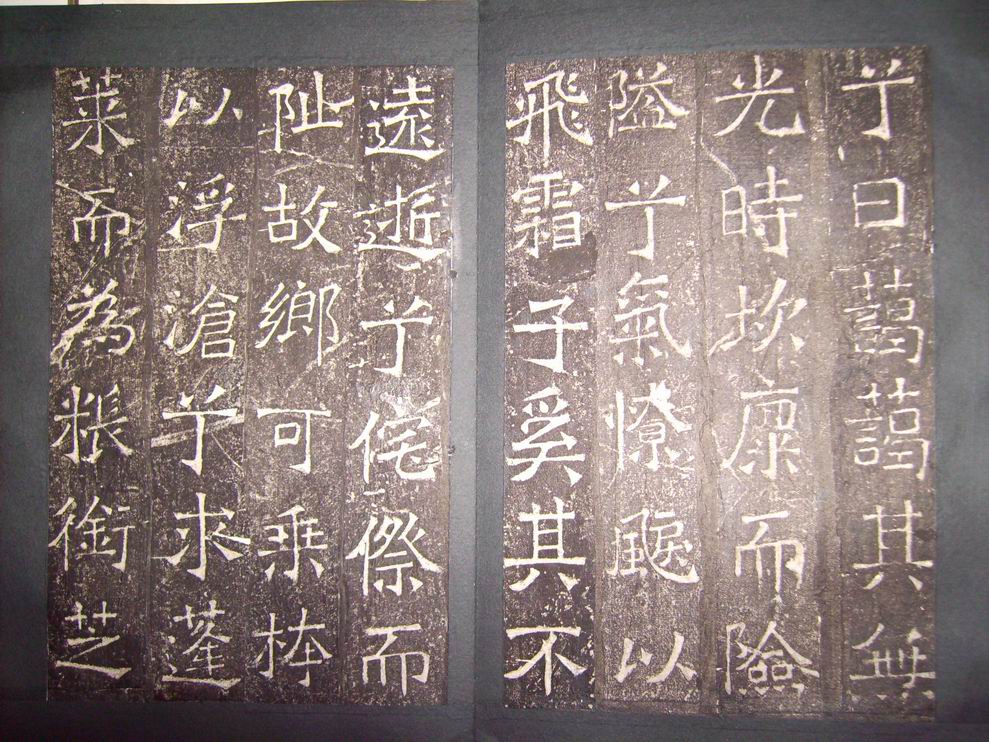 兮日藹藹其無
光時坎廩而險
隘兮氣憭以
飛霜子奚其不
遠逝兮侘傺而
阯故鄉可乘桴
以浮滄兮求蓬
萊而為粻銜芝